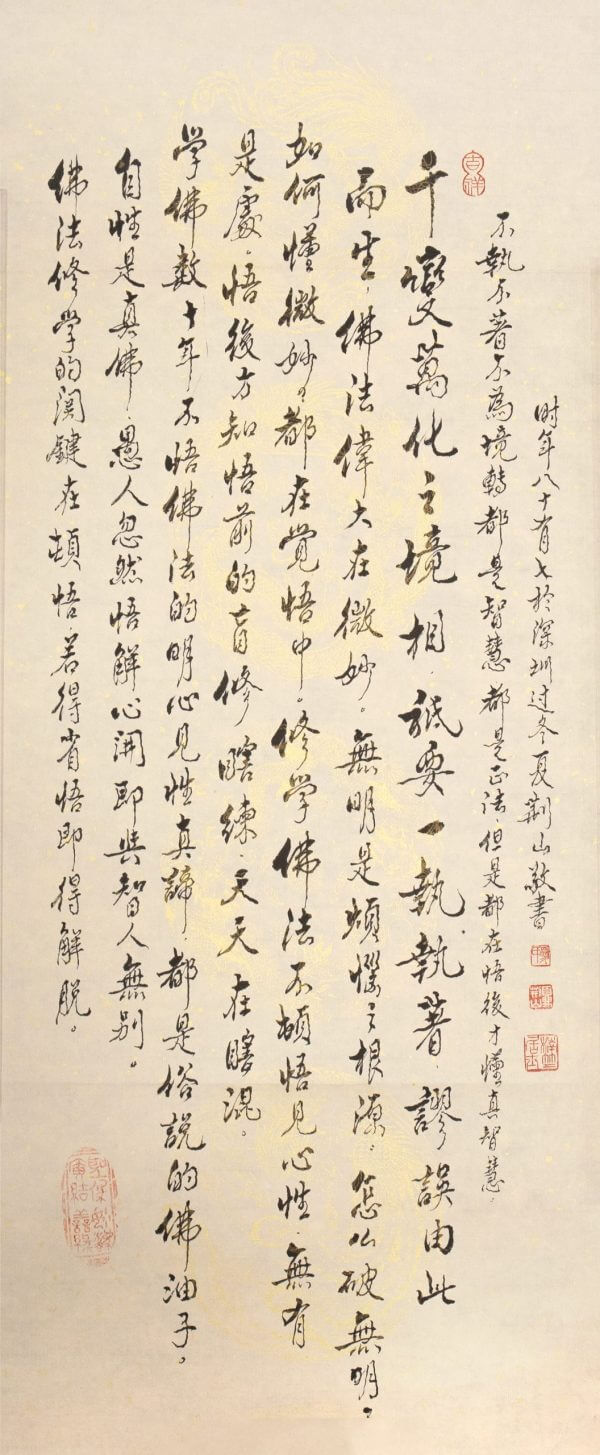 时年八十有七於深圳过冬夏荆山敬書
不執不著不為境轉都是智慧都是正法.但是都在悟後才懂真智慧.
吉祥
千變萬化之境相.祇要一執.執著.謬誤由此
而生.佛法偉大在微妙。無明是煩惱之根源。怎么破無明,
如何懂微妙?都在覺悟中。修学佛法不頓悟見心性.無有
是處.悟後方知悟前的盲修瞎練.天天在瞎混。
学佛數十年不悟佛法的明心見性真諦.都是俗說的佛油子。
自性是真佛.愚人忽然悟解心開即與智人無別。
佛法修学的関鍵在頓悟.若得省悟即得解脫。